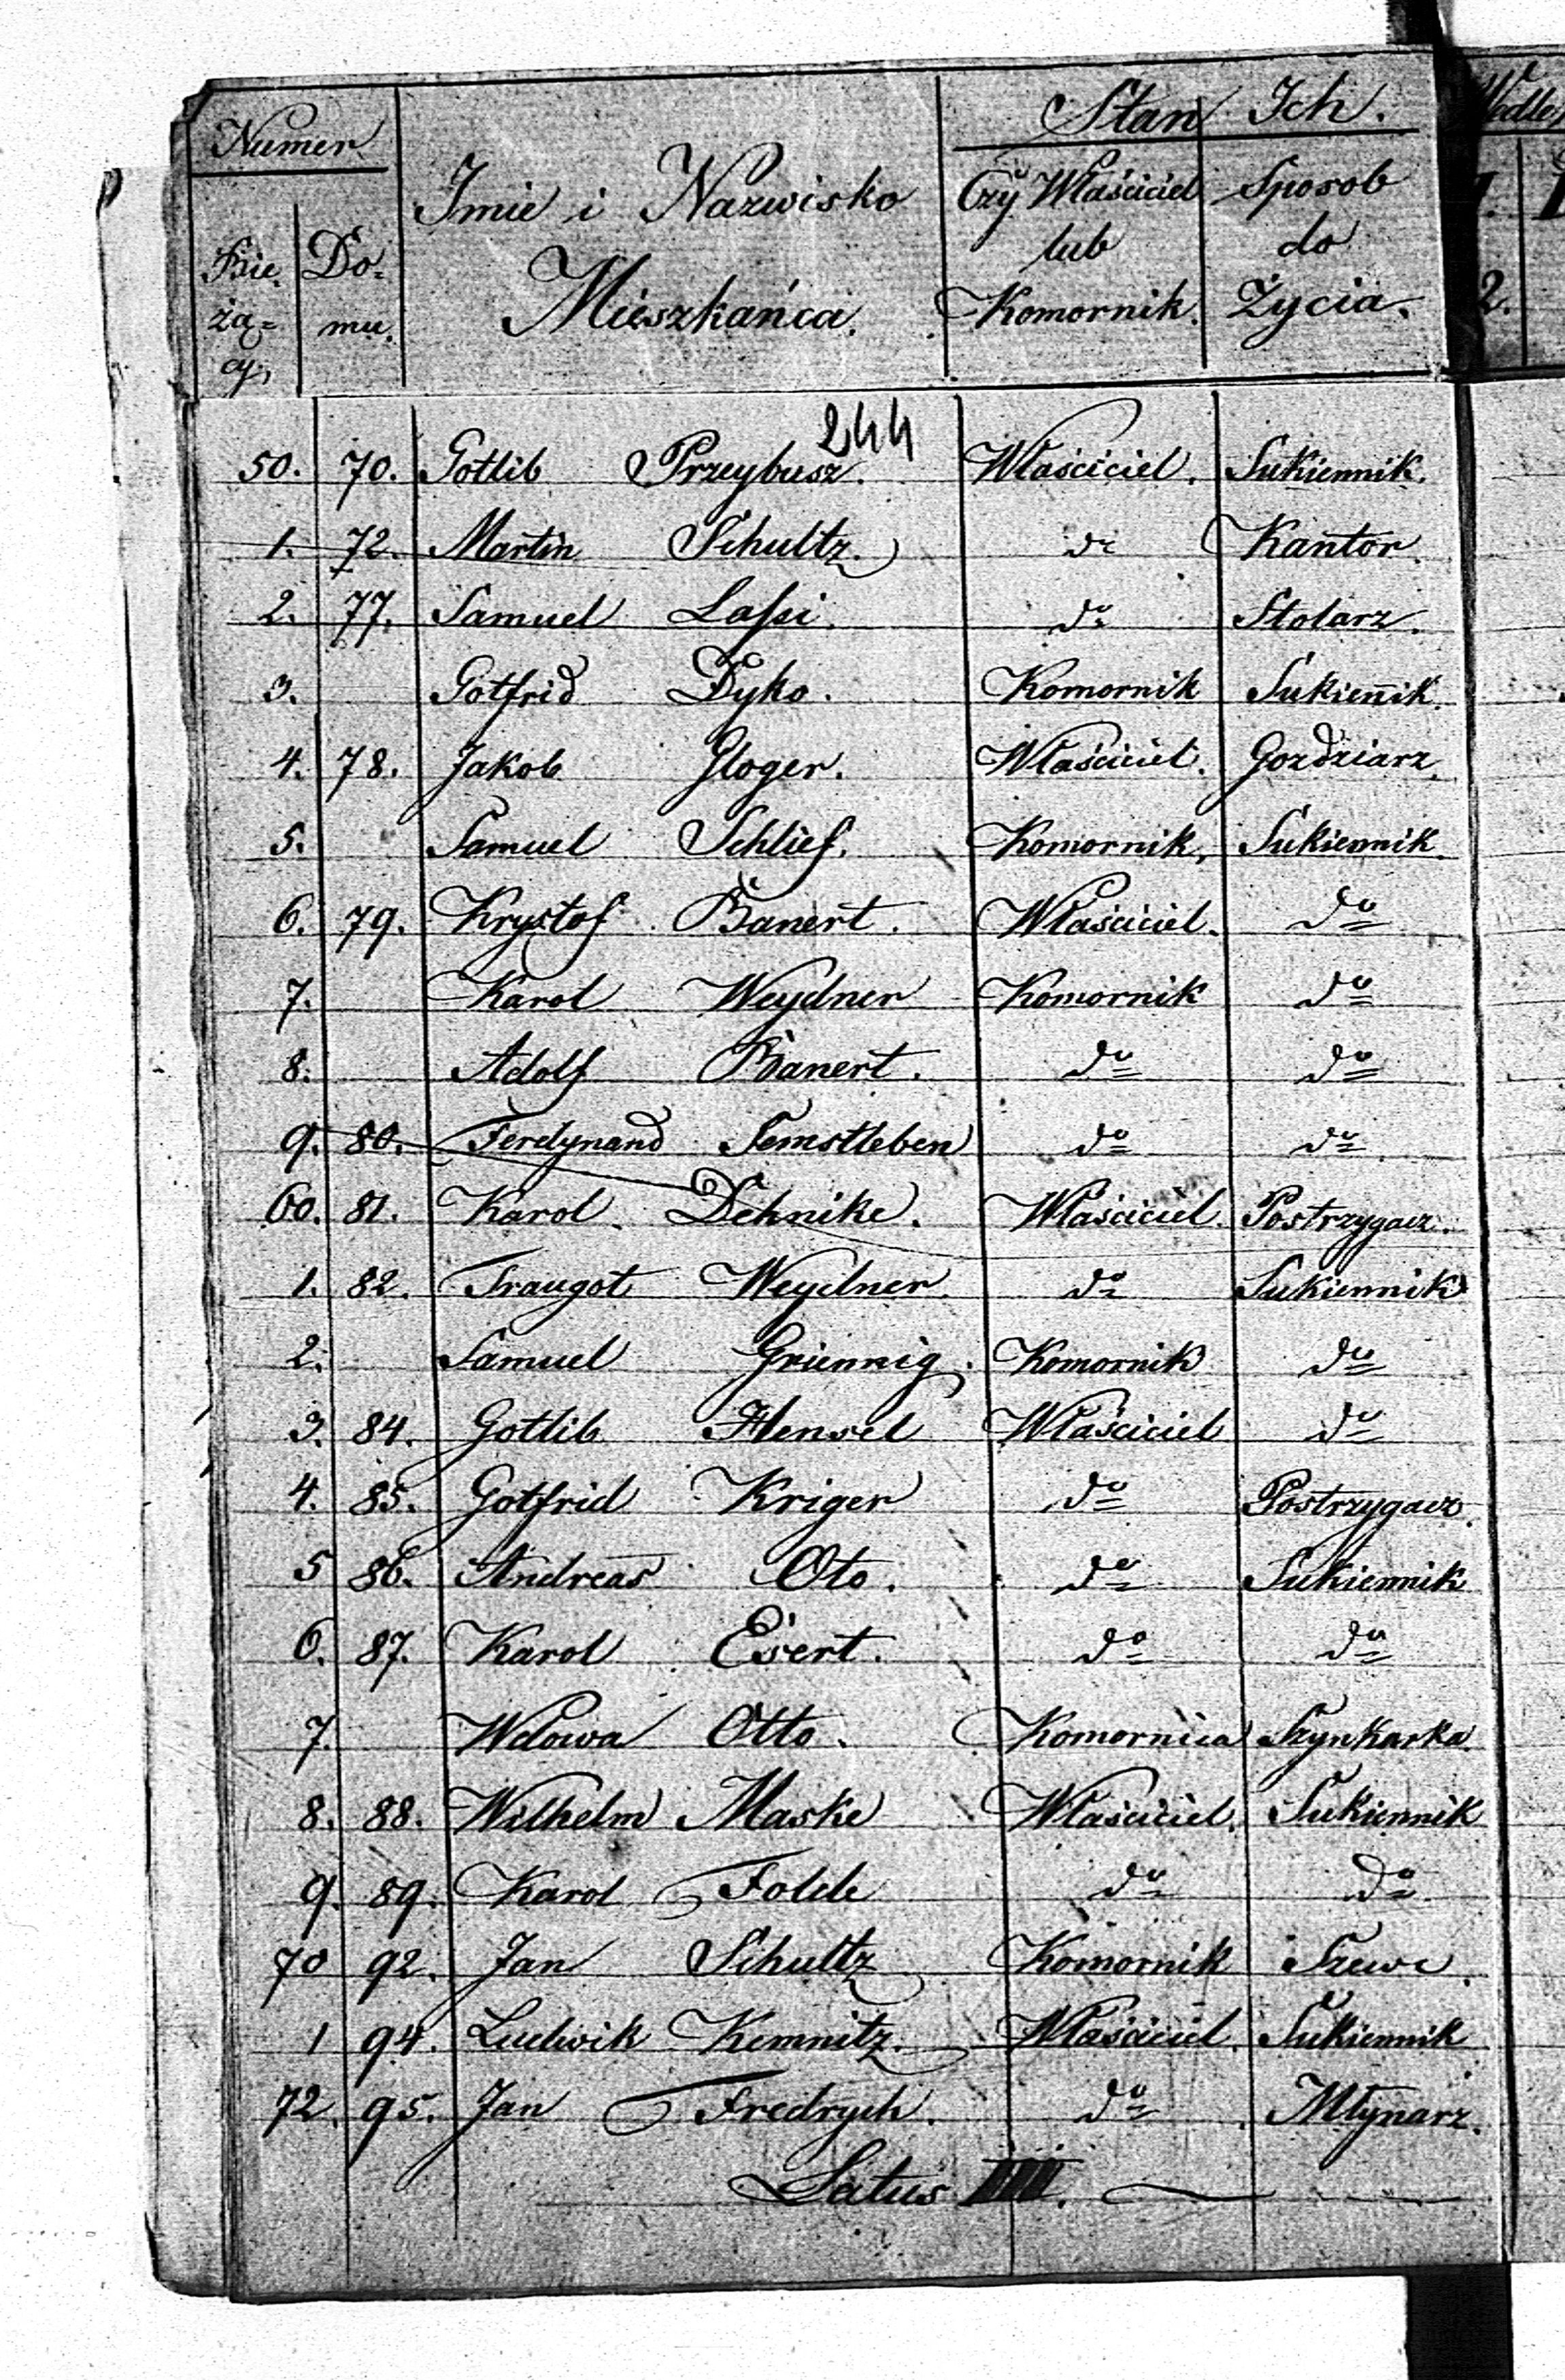 Numer
Stan Ich.
Imie i Nazwisko
Mieszkańca.
Czy Właściciel
lub
Komornik.
Sposob
do
Życia.
Bie-
żą-
cy,
Do-
mu.
244
50. 70. Gotlib Przeybusz. Właściciel. Sukiennik.
1. 72. Martin Schultz. do Kantor.
2. 77. Samuel Lassi. do Stolarz.
3. Gotfrid Dyko. Komornik Sukien̄ik.
4. 78. Jakob Gloger. Właściciel. Gozdziarz.
5. Samuel Schlief. Komornik. Sukiennik.
6. 79. Krystof Banert. Właściciel. do
7. Karol Weydner Komornik do
8. Adolf Banert. do do
9. 80. Ferdynand Semstleben do do
60. 81. Karol Dehnike. Właściciel. Postrzygacz.
1. 82. Traugot Weydner. do Sukiennik
2. Samuel Griennig. Komornik do
3. 84. Gotlib Hensel Właściciel do
4. 85. Gotfrid Kriger do Postrzygacz.
5 86. Andreas Oto. do Sukiennik
6. 87. Karol Eisert. do do
7. Wdowa Otto. Komornica Szynkarka.
8. 88. Wilhelm Maske Właściciel. Sukiennik
9. 89. Karol Folde do do
70 92. Jan Schultz Komornik Szewc.
1 94. Ludwik Kemnitz. Właściciel. Sukiennik
72. 95. Jan Fredrych. do Młynarz.
Latus IIII.